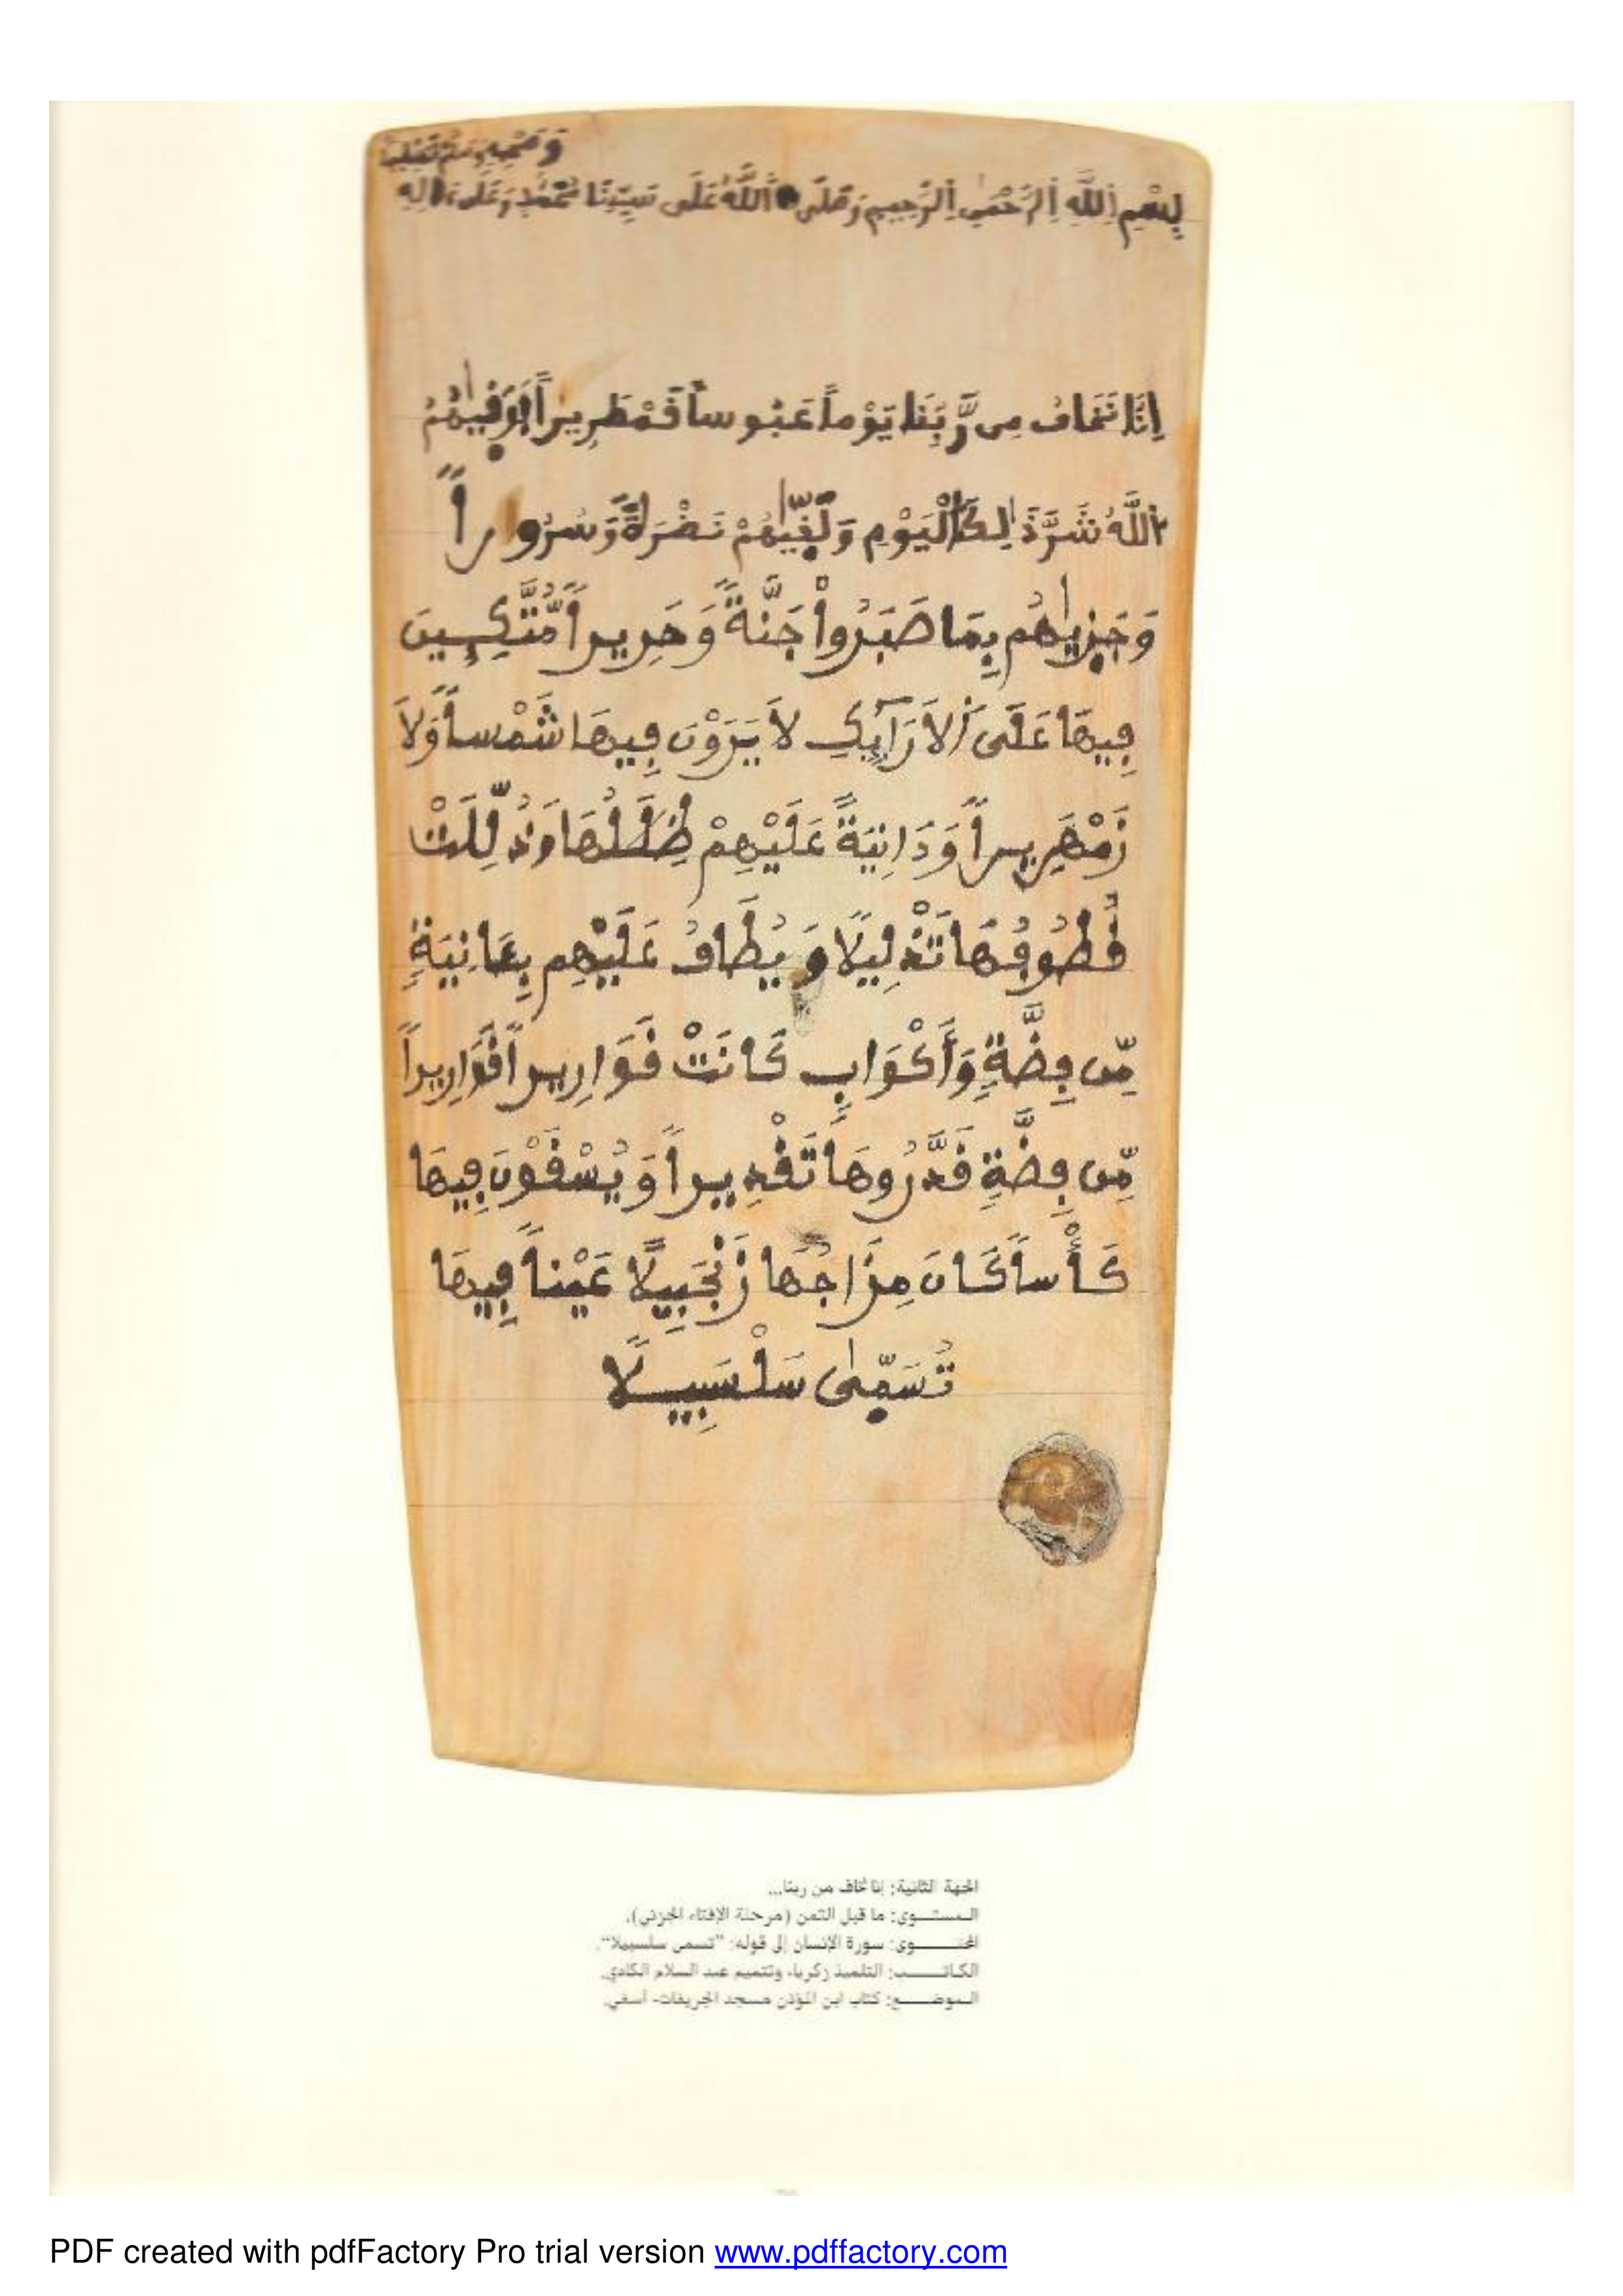 وَصَحْبِهِ وَسَلَّمَ تَسْلِيماً
بِسْمِ اِللَّهِ اِلرَّحْمٰنِ اِلرَّحِيمِ وَصَلَّى اَللَّهُ عَلَى سَيِّدِنَا مُحَمَّدٍ وَعَلَىٰ ءَالِهِ
إِنَّا نَخَافُ مِن رَّبِّنَا يَوْماً عَبُوساً قَمْطَرِيراً فَوَقٰيهُمُ
اُللَّهُ شَرَّ ذَٰلِكَ اَلْيَوْمِ وَلَقّٰيهُمْ نَضْرَةً وَسُرُوراً
وَجَزٰيهُم بِمَا صَبَرُواْ جَنَّةً وَحَرِيراً مُّتَّكِـِٕينَ
فِيهَا عَلَى اَلَارَآئِكِ لَا يَرَوْنَ فِيهَا شَمْساً وَلَا
زَمْهَرِيراً وَدَانِيَةً عَلَيْهِمْ ظِلَٰلُهَا وَذُلِّلَتْ
قُطُوفُهَا تَذْلِيلًا وَيُطَافُ عَلَيْهِم بِـَٔانِيَةٍ
مِّن فِضَّةٍ وَأَكْوَابٍ كَانَتْ قَوَارِيراً قَوَارِيراً
مِّن فِضَّةٍ قَدَّرُوهَا تَقْدِيراً وَيُسْقَوْنَ فِيهَا
كَأْساً كَانَ مِزَاجُهَا زَنْجَبِيلًا عَيْناً فِيهَا
تُسَمّٰى سَلْسَبِيلًا
الجهة الثانية: إنا نخاف من ربنا...
المستـــوى: ما قبل الثمن (مرحلة الإفتاء الجزئي).
المحتـــــوى: سورة الإنسان إلى قوله: "تسمى سلسبيلا".
الكاتـــــب: التلميذ زكرياء وتتميم عبد السلام الكادي.
الموضــــع: كتاب ابن المؤذن مسجد الجريفات- آسفي.
PDF created with pdfFactory Pro trial version www.pdffactory.com